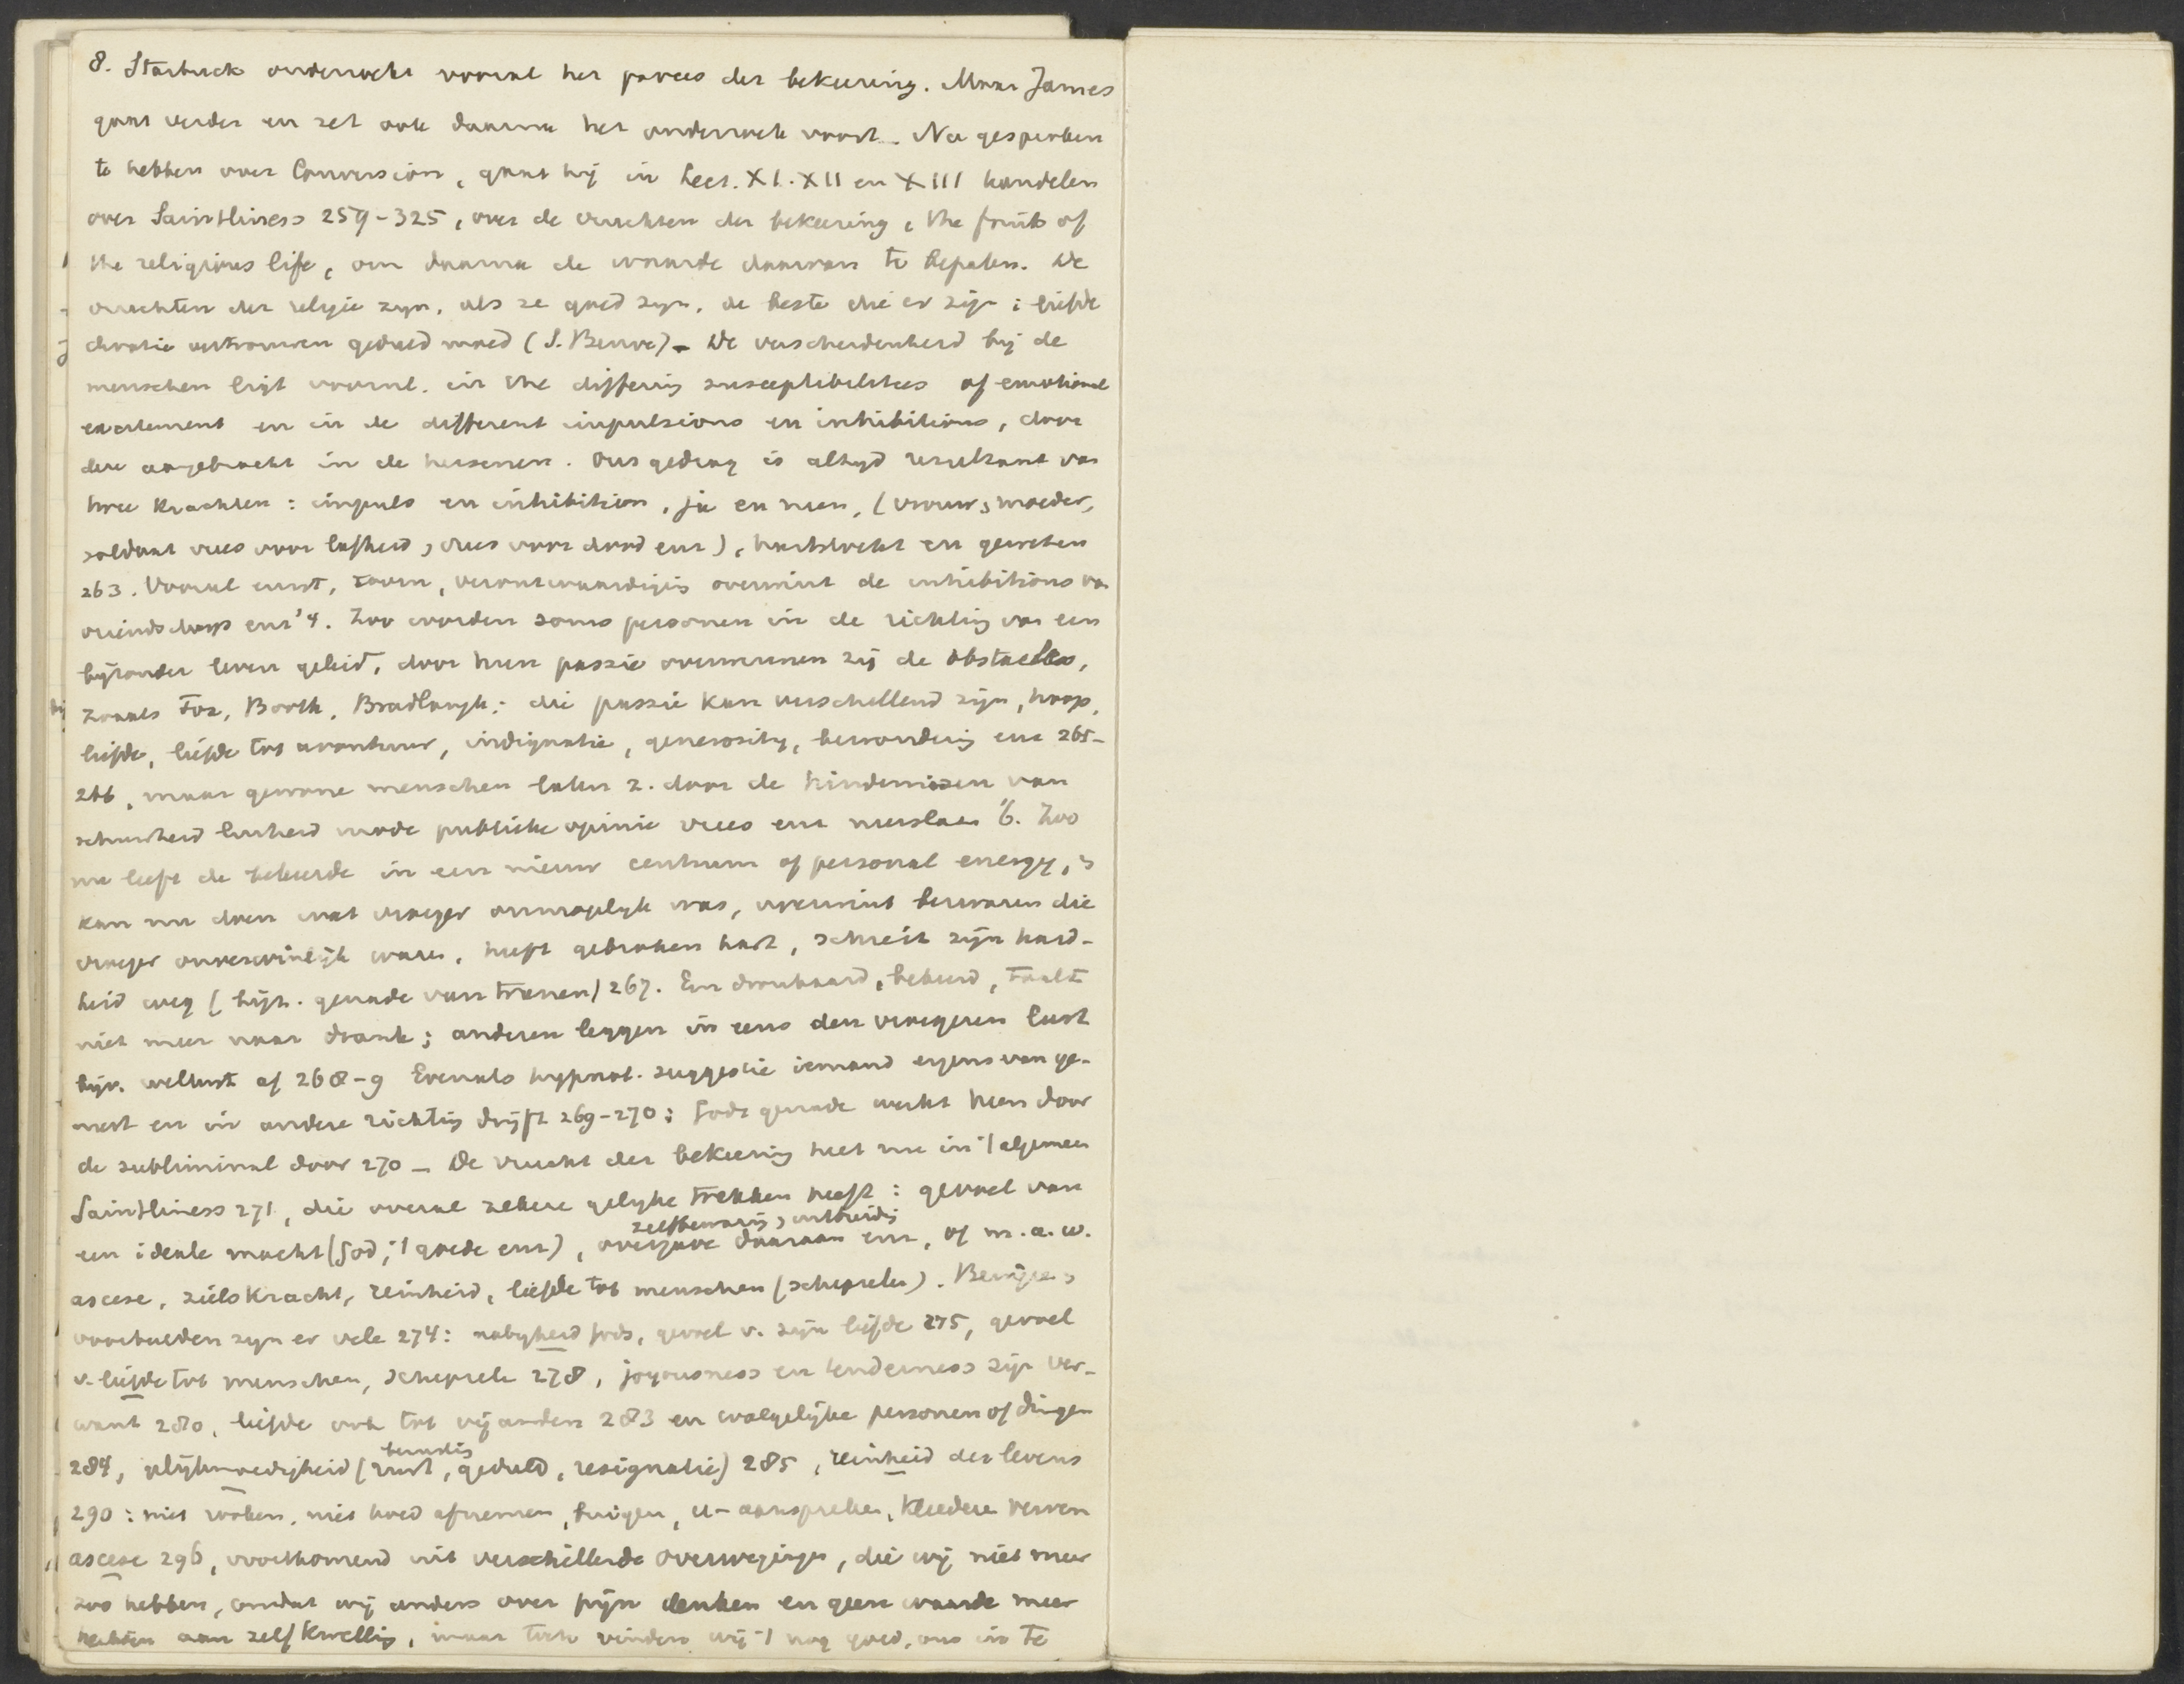 8. Starbuck onderzocht vooral het proces der bekeering. Maar James
gaat verder en zet ook daarna het onderzoek voort. Na gesproken
te hebben over Conversion, gaat hij in Lect. XI. XII en XIII handelen
over Saintliness 259-325, over de vruchten der bekeering, the fruits of
the religious life, om daarna de waarde daarvan te bepalen. De
vruchten der religie zijn, als ze goed zijn, de beste die er zijn: liefde
devotie vertrouwen geduld moed (S. Beuve) - De verscheidenheid bij de
menschen ligt vooral. in the differing susceptibilities of emotional
excitement en in de different impulsions en inhibitions, door
deze aangebracht in de hersenen. Ons gedrag is altijd resultant van
twee krachten: impuls en inhibition, ja en neen, (vrouw, moeder,
soldaat vrees voor lafheid, vrees voor dood enz), hartstocht en geweten
263. Vooral ernst, toorn, verontwaardiging overwint de inhibitions van
vriendschap enz '4. Zoo worden soms personen in de richting van een
bijzonder leven geleid, door hun passie overwinnen zij de obstacles,
zooals Fox, Booth, Bradlaugh; die passie kan verschillend zijn, hoop,
liefde, liefde tot avontuur, indignatie, generosity, bewondering enz 265-
266, maar gewone menschen laten z. door de hindernissen van
schuwheid luiheid mode publieke opinie vrees enz neerslaan '6. Zoo
nu leeft de bekeerde in een nieuw centrum of personal energy,
kan nu doen wat vroeger onmogelijk was, overwint bezwaren die
vroeger onoverwinlijk waren, heeft gebroken hart, schreit zijn hard-
heid weg (bijz. genade van tranen) 267. Een dronkaard, bekeerd, taalt
niet meer naar drank; anderen leggen in eens den vroegeren lust
bijv. wellust af 268-9 Evenals hypnot. suggestie iemand ergens van ge-
neest en in andere richting drijft 269-270: Gods genade werkt heen door
de subliminal door 270 - De vrucht der bekeering heet nu in 't algemeen
Saintliness 271, die overal zekere gelijke trekken heeft: gevoel van
zelfbewaring, uitbreiding
een ideale macht (God, 't goede enz), overgave daaraan enz, of m.a.w.
ascese, zielskracht, reinheid, liefde tot menschen (schepselen). Bewijzen,
voorbeelden zijn er vele 274: nabijheid Gods, gevoel v. zijn liefde 275, gevoel
v. liefde tot menschen, schepsele 278, joyousness en tenderness zijn ver-
want 280, liefde ook tot vijanden 283 en walgelijke personen of dingen
berusting
284, gelijkmoedigheid (rust, geduld, resignatie) 285, reinheid des levens
290: niet rooken, niet hoed afnemen, buigen, u-aanspreken, kleedere verven
ascese 296, voortkomend uit verschillende overwegingen, die wij niet meer
zoo hebben, omdat wij anders over pijn denken en geen waarde meer
hechten aan zelfkwelling, maar toch vinden wij 't nog goed, ons in te